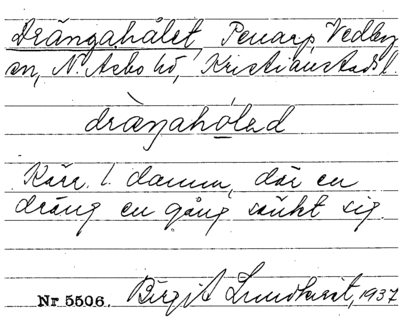 Drängahålet, Penarp, Vedby
sn, N. Åsbo hd, Kristianstads l.
dräŋahólad
Kärr l. damm, där en
dräng en gång sänkt sig.
Nr 5506. Birgit Lundkvist, 1937